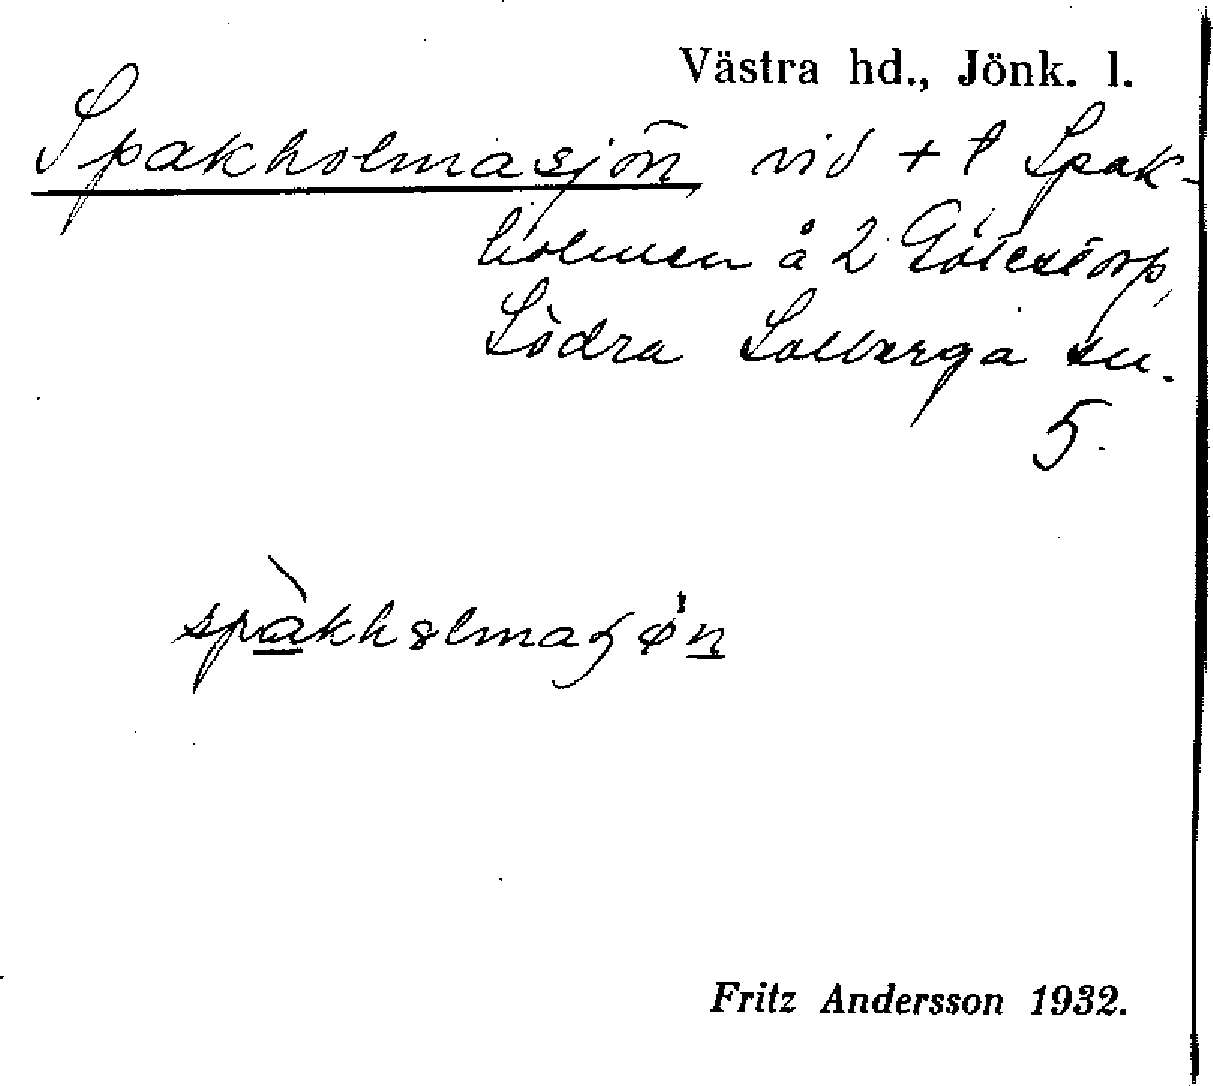 Västra hd., Jönk. l.
Spakholmasjön vid + t Spak-
holmen å 2 Götestorp,
Södra Solberga sn.
5.
spàkhɷlmaʂø̀n
Fritz Andersson 1932.